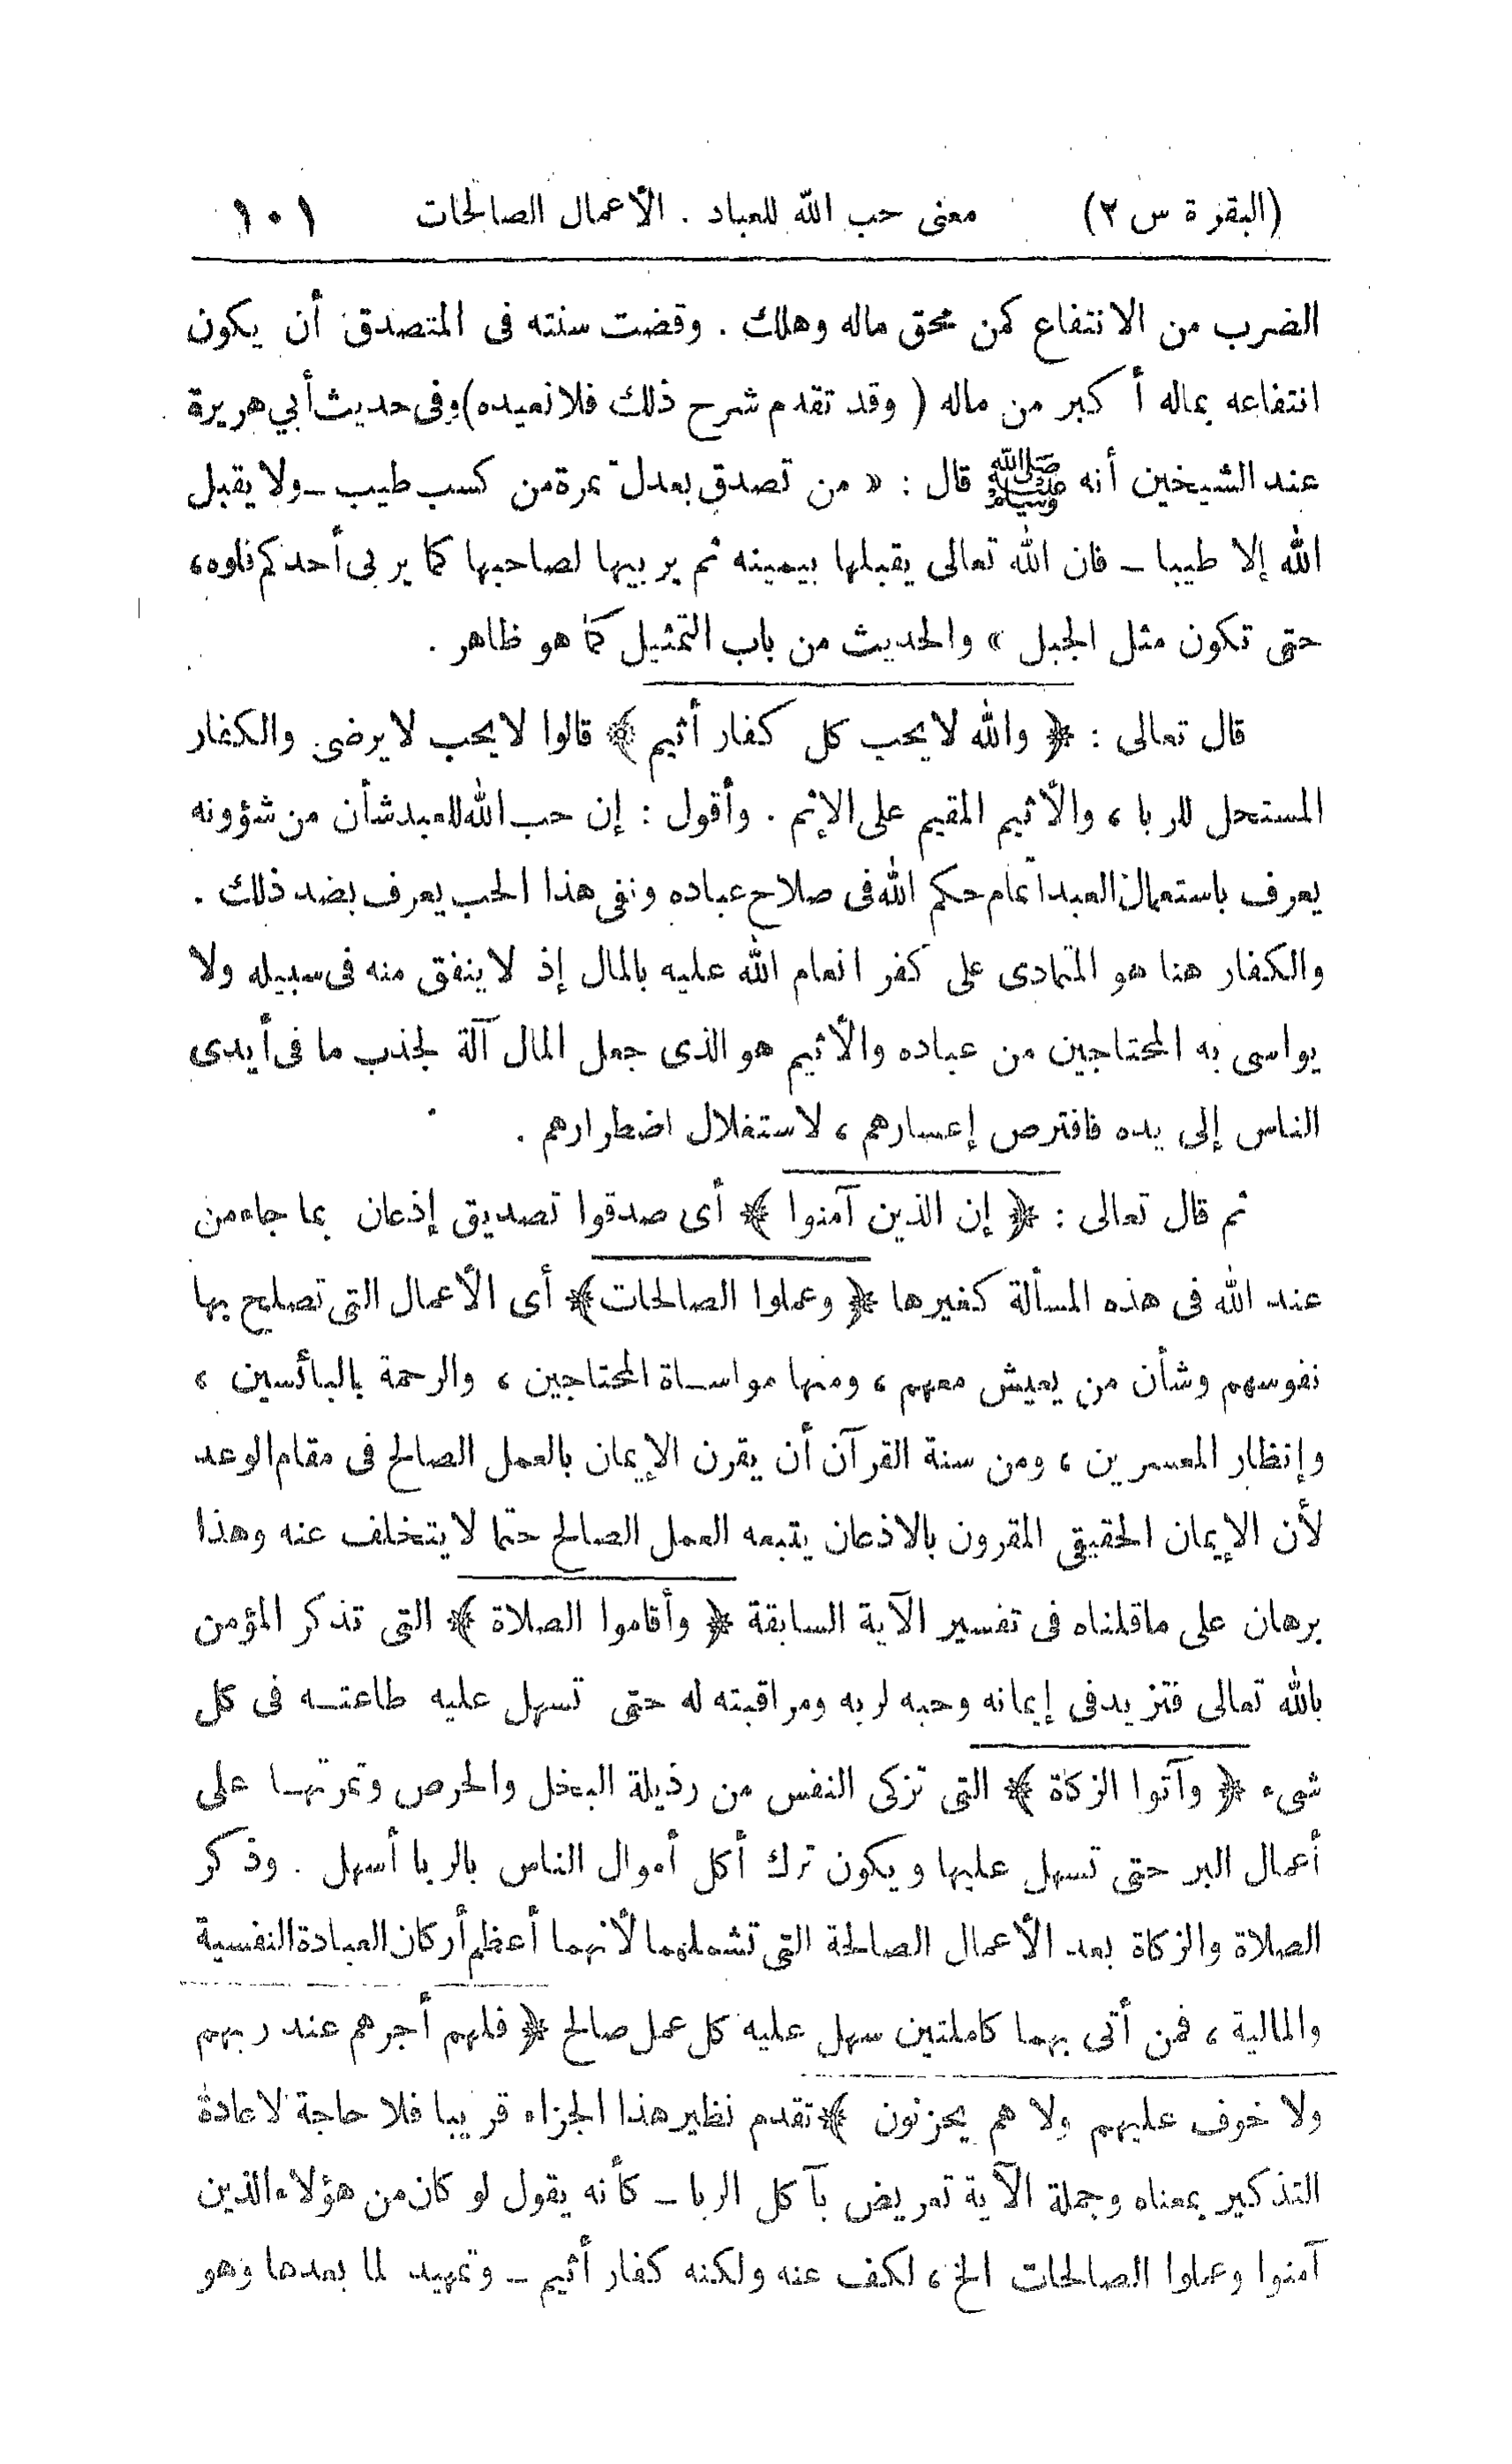 (البقرة س ٢) معنى حب الله للعباد . الأعمال الصالحات ١٠١
الضرب من الانتفاع كمن محق ماله وهلك . وقضت سنته فى المتصدق أن يكون
انتفاعه بماله أكبر من ماله ( وقد تقدم شرح ذلك فلا نعيده) وفى حديث أبي هريرة
عند الشيخين أنه ﷺ قال : « من تصدق بعدل تمرة من كسب طيب ـ ولا يقبل
الله إلا طيبا ـ فان الله تعالى يقبلها بيمينه ثم يربيها لصاحبها كما يربى أحدكم فلوه،
حتى تكون مثل الجبل » والحديث من باب التمثيل كما هو ظاهر .
قال تعالى : ﴿ والله لا يحب كل كفار أثيم ﴾ قالوا لا يحب لا يرضى والكفار
المستحل للربا ، والأثيم المقيم على الإثم . وأقول : إن حب الله للعبد شأن من شؤونه
يعرف باستعمال العبد اتمام حكم الله فى صلاح عباده ونفى هذا الحب يعرف بضد ذلك .
والكفار هنا هو المتمادى على كفر انعام الله عليه بالمال إذ لا ينفق منه فى سبيله ولا
يواسى به المحتاجين من عباده والأثيم هو الذى جعل المال آلة لجذب ما فى أيدى
الناس إلى يده فافترص إعسارهم ، لاستغلال اضطرارهم .
ثم قال تعالى : ﴿ إن الذين آمنوا ﴾ أى صدقوا تصديق إذعان بما جاء من
عند الله فى هذه المسألة كغيرها ﴿ وعملوا الصالحات ﴾ أى الأعمال التى تصلح بها
نفوسهم وشأن من يعيش معهم ، ومنها مواساة المحتاجين ، والرحمة بالبائسين ،
وإنظار المعسرين ، ومن سنة القرآن أن يقرن الإيمان بالعمل الصالح فى مقام الوعد
لأن الإيمان الحقيقى المقرون بالاذعان يتبعه العمل الصالح حتما لا يتخلف عنه وهذا
برهان على ما قلناه فى تفسير الآية السابقة ﴿ وأقاموا الصلاة ﴾ التى تذكر المؤمن
بالله تعالى فتزيد فى إيمانه وحبه لربه ومراقبته له حتى تسهل عليه طاعته فى كل
شىء ﴿ وآتوا الزكاة ﴾ التى تزكى النفس من رذيلة البخل والحرص وتمرنها على
أعمال البر حتى تسهل عليها ويكون ترك أكل أموال الناس بالربا أسهل . وذكر
الصلاة والزكاة بعد الأعمال الصالحة التى تشملهما لأنهما أعظم أركان العبادة النفسية
والمالية ، فمن أتى بهما كاملتين سهل عليه كل عمل صالح ﴿ فلهم أجرهم عند ربهم
ولا خوف عليهم ولا هم يحزنون ﴾ تقدم نظير هذا الجزاء قريبا فلا حاجة لاعادة
التذكير بمعناه وجملة الآية تعريض بآكل الربا ـ كأنه يقول لو كان من هؤلاء الذين
آمنوا وعملوا الصالحات الخ ، لكف عنه ولكنه كفار أثيم ـ وتمهيد لما بعدها وهو